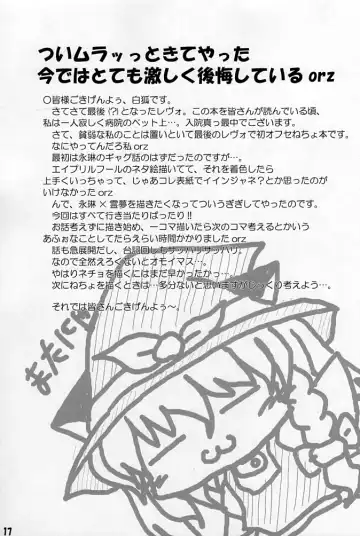 ついムラッっときてやった
今ではとても激しく後悔しているorz
○皆様ごきげんよぅ、白狐です。
さてさて最後（?）となったレヴォ。この本を皆さんが読んでいる頃、
私は一人寂しく病院のベット上…。入院真っ最中でございます。
さて、貧弱な私のことは置いといて最後のレヴォで初オフセねちょ本です。
なにやってんだろ私 orz
最初は永琳のギャグ話のはずだったのですが…。
エイプリルフールのネタ絵描いてて、それを着色したら
上手くいっちゃって、じゃあコレ表紙でイインジャネ？とか思ったのが
いけなかった orz
んで、永琳×霊夢を描きたくなってついうぎぎしてやったのです。
今回はすべて行き当たりばったり!!
お話考えずに描き始め、一コマ描いたら次のコマ考えるとかいう
あふぉなことしてたらえらい時間かかりました orz
話も急展開だし、台詞回しもサッパリサッパリ。
なので全然えろくないとオモイマス…。
やはりネチョを描くにはまだ早かったか…。
次にねちょを描くときは…多分ないと思いますがじっくり考えよう…。
それでは皆さんごきげんよぅ～。
またにゃ
17